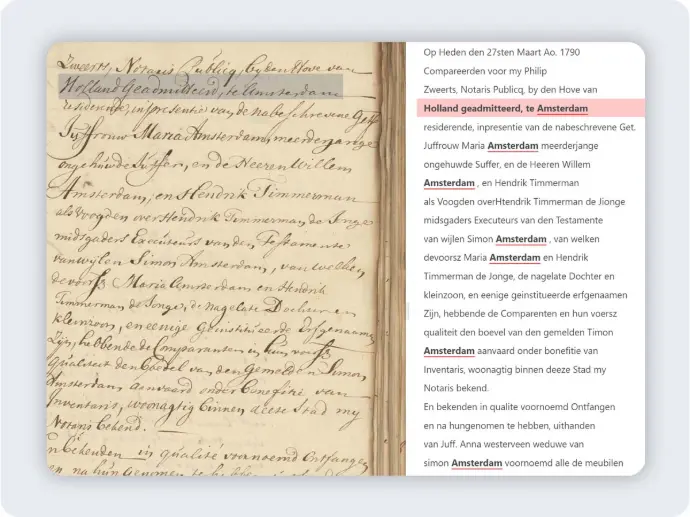 Zweerts, Notaris Publicq, by den Hove van
Holland Geadmitteerd, te Amsterdam
residerende, in presentie van de nabeschreve Get
Juffrouw Maria Amsterdam, meerderjange
ongehuwde Juffer, en de Heeren Willem
Amsterdam, en Hendrik Timmerman
als Voogden over Hendrik Timmerman de Jonge
midsgaders Executeurs van den Testamente
van wylen Simon Amsterdam, van welken
de voorsz Maria Amsterdam en Hendrik
Timmerman de Jonge, de nagelate Dochter en
kleinzoon, en eenige Geinstitueerde Erfgenaamen
Zyn, hebbende de Comparanten in hun voorsz
qualiteit den Boedel van den Gemelden Simon
Amsterdam aanvaard onder Benefitie van
Inventaris, woonagtig binnen deese Stad my
Notaris bekend.
En bekenden in qualité voornoemd Ontfangen
en na hun Genomen te hebben
Op Heden den 27sten Maart Ao. 1790
Compareerden voor my Philip
Zweerts, Notaris Publicq, by den Hove van
Holland geadmitteerd, te Amsterdam
residerende, inpresentie van de nabeschrevene Get.
Juffrouw Maria Amsterdam meerderjange
ongehuwde Suffer, en de Heeren Willem
Amsterdam , en Hendrik Timmerman
als Voogden overHtendrik Timmerman de Jionge
midsgaders Executeurs van den Testamente
van wijlen Simon Amsterdam , van welken
devoorsz Maria Amsterdam en Hendrik
Timmerman de Jonge, de nagelate Dochter en
kleinzoon, en eenige geinstitueerde erfgenaamen
Zijn, hebbende de Comparenten en hun voorsz
qualiteit den boevel van den gemelden Timon
Amsterdam aanvaard onder bonefitie van
Inventaris, woonagtig binnen deeze Stad my
Notaris bekend.
En bekenden in qualite voornoemd Ontfangen
en na hungenomen te hebben, uithanden
van Juff. Anna westerveen weduwe van
simon Amsterdam voornoemd alle de meubilen